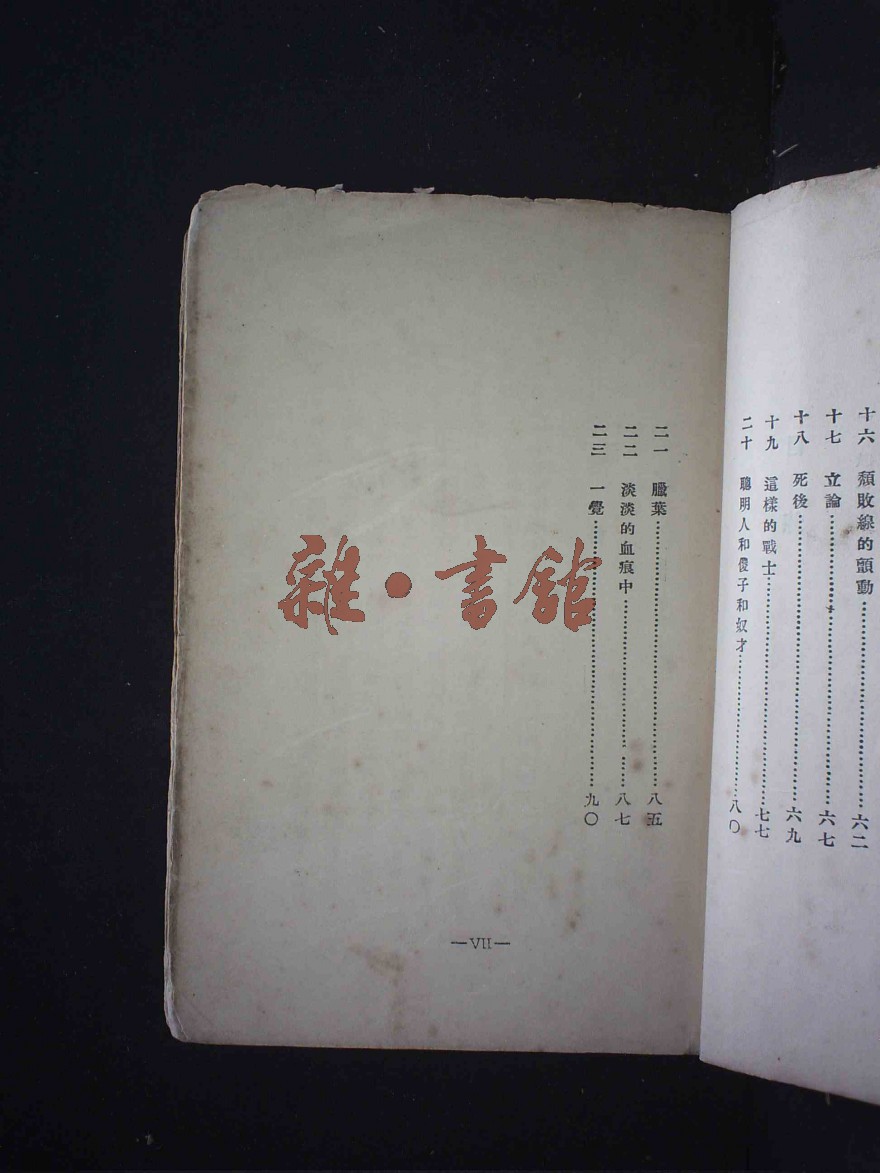 十六 頹敗線的顫動……………………六二
十七 立論……………………六七
十八 死後……………………六九
十九 這樣的戰士……………………七七
二十 聰明人和傻子和奴才……………………八〇
二一 臘葉……………………八五
二二 淡淡的血痕中……………………八七
二三 一覺……………………九〇
—VII—
雜·書館